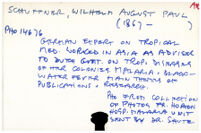 SCHUFFNER, WILHELM AUGUST PAUL
(1867 -      )
PHO 14676
GERMAN EXPERT ON TROPICAL
MED. WORKED IN ASIA AS ADVISOR
TO DUTCH GOVT. ON TROP. DISEASES
OF HER COLONIES. MALARIA, BLACK-
WATER FEVER MAIN THEMES OF
PUBLICATIONS & RESEARCH.
PHO FROM COLLECTION
OF PHOTOS FR.
HOSP. MALARIA UNIT
SENT BY DR.